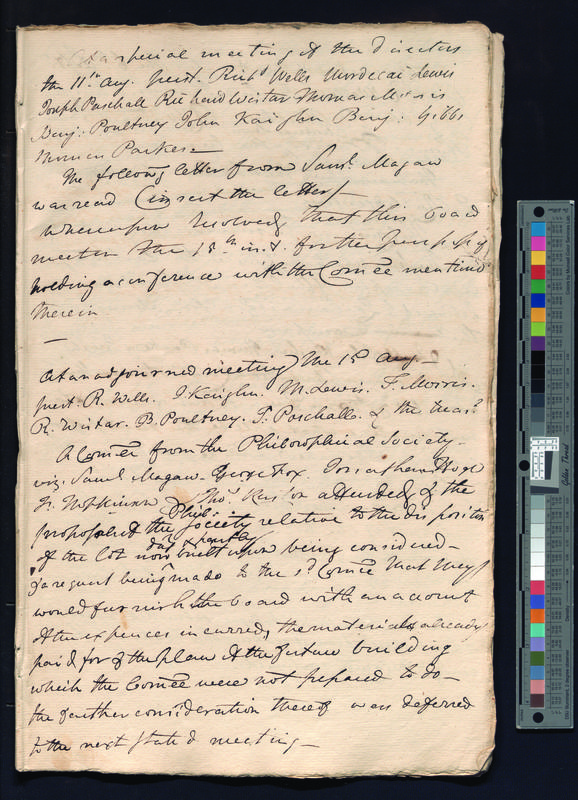 At a special meeting of the directors
the 11th Aug. prest. Richd Wells Mordecai Lewis
Joseph Paschall Richard Wistar Thomas Morris
Benj: Poultney John Kaighn Benj: Gibbs
Parker
The following letter from Saml. Magaw
was read (insert the letter)
Whereupon resolved that this board
meet on the 15th inst. for the purpose of
holding a conference with the Comee mention'd
therein
—
At an adjourned meeting the 15 Aug.
prest. R. Wells. J Kaighn. M. Lewis. T. Morris.
R. Wistar. B. Poultney. J. Paschall. & the treasr.
A Comee from the Philosophical Society
viz. Saml. Magaw. George Fox Jonathan Hoge
Fr. Hopkinson Thos. attended & the
proposal of the Phil: Society relative to the disposition
of the lot now dug & partly built upon being considered—
& a request being made to the sd. Comee that they
would furnish the board with an account
of the expences incurred, the materials already
paid for & the plan of the future building
which the Comee were not prepared to do—
the further consideration thereof was deferred
to the next stated meeting—